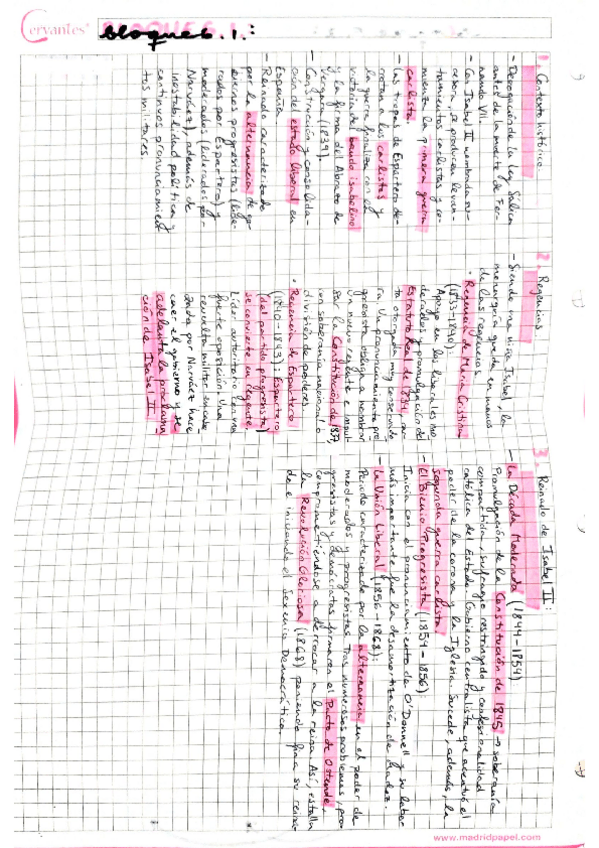 Cervantes
bloque 6.1.:
1. Contexto histórico.
- Derogación de la Ley Sálica
antes de la muerte de Fer-
nando VII.
- Con Isabel II nombrada su-
cesora, se producen levan-
tamientos carlistas y co-
mienza la primera guerra
carlista.
- Las tropas de Espartero de-
rrotan a los carlistas y
la guerra finaliza con el
victoria del bando isabelino
y la firma del Abrazo de
Vergara (1839).
- Construcción y consolida-
ción del estado liberal en
Espanna.
- Reinado caracterizado
por la alternancia de go-
biernos progresistas (lide-
rados por Espartero) y
moderados (liderados por
Narváez), además de
inestabilidad política y
continuos pronunciamien
tos militares.
2. Regencias.
- Siendo una niña Isabel, la
monarquía queda en manos
de las regencias
· Regencia de María Cristina
(1833-1840):
Apoyo en los liberales mo
derados y promulgación del
Estatuto Real de 1834, car
ta otorgada muy conservado
ra. Un pronunciamiento pro
gresista obliga a nombrar
un nuevo gobierno e impul
sar la Constitución de 1837,
con soberanía nacional o
división de poderes.
· Regencia de Espartero
(1840-1843): Espartero
(del partido progresista)
se convierte en regente.
Líder autoritario con una
fuerte oposición. Una
revuelta militar encabe
zada por Narváez hace
caer el gobierno y se
adelanta la proclama
ción de Isabel II.
3. Reinado de Isabel II:
- La Década Moderada (1844-1854)
Promulgación de la Constitución de 1845 → soberanía
compartida, sufragio restringido y confesionalidad
católica del Estado. Gobierno centralista que acentuó el
poder de la corona y la Iglesia. Sucede, además, la
segunda guerra carlista.
- El Bienio Progresista (1854-1856):
Inicia con el pronunciamiento de O'Donnell y su labor
más importante fue la desamortización de Madoz.
- La Unión Liberal (1856-1868):
Periodo caracterizado por la alternancia en el poder de
moderados y progresistas. Tras numerosos problemas, pro-
gresistas y demócratas firmaron el Pacto de Ostende,
comprometiéndose a derrocar a la reina. Así, estalla
la Revolución Gloriosa (1868) poniendo fin a su reina-
do e iniciando el Sexenio Democrático.
www.madridpapel.com